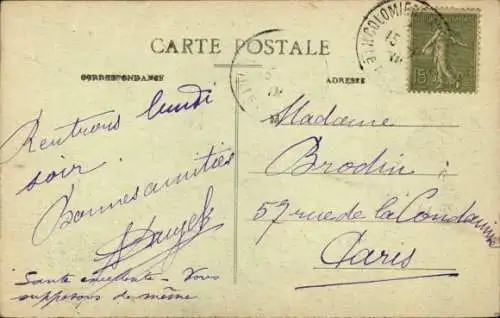 CARTE POSTALE
CORRESPONDANCE
ADRESSE
COLOMIE
15
15
Rentrons lundi
soir.
Bonnes amitiés
Santé excellente - Vous
supposons de même
Madame
Brodin
57 rue de la Condamine
Paris